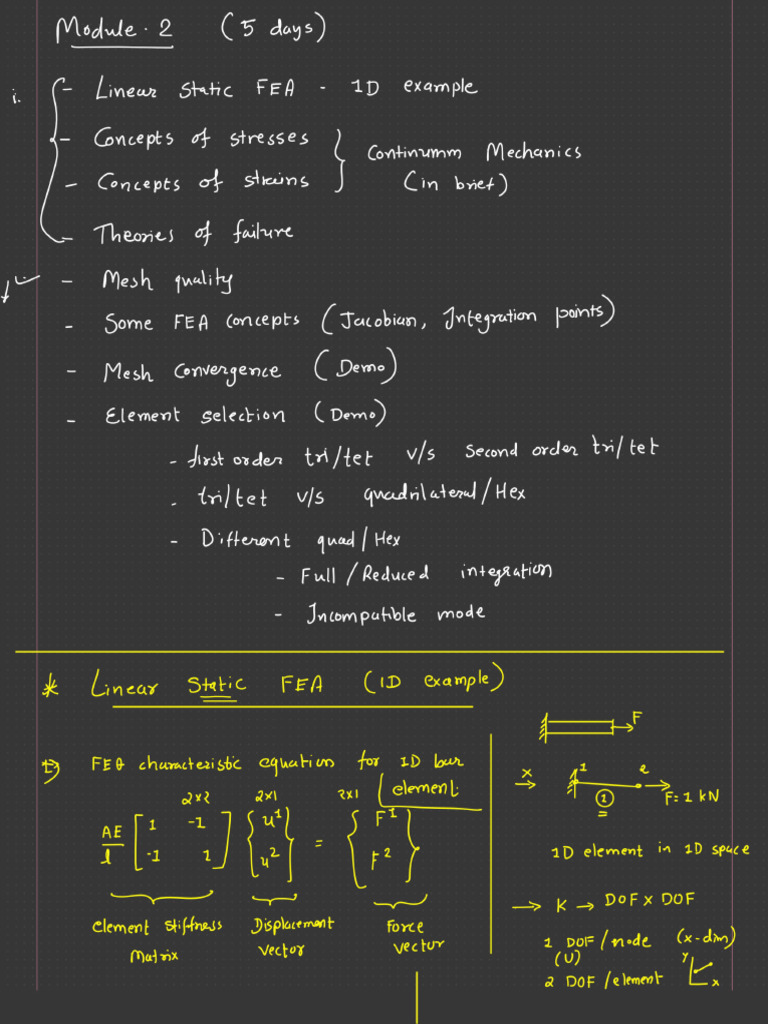 Module-2 (5 days)
i. - Linear static FEA - 1D example
- Concepts of stresses
- Concepts of strains
Continumm Mechanics
(in brief)
- Theories of failure
- Mesh quality
- Some FEA concepts (Jacobian, Integration points)
- Mesh convergence (Demo)
- Element selection (Demo)
- first order tri/tet v/s second order tri/tet
- tri/tet v/s quadrilateral/Hex
- Different quad/Hex
- Full/Reduced integration
- Incompatible mode
* Linear Static FEA (1D example)
FEA characteristic equation for 1D bar
element:
2x2 2x1 2x1
AE/l [1 -1 -1 1] {u1 u2} = {F1 F2}
Element stiffness
Matrix
Displacement
vector
Force
vector
F
x 1 2
1 F=1 kN
1D element in 1D space
→ K → DOF x DOF
1 DOF/node (x-dim)
(U)
2 DOF/element
y
x